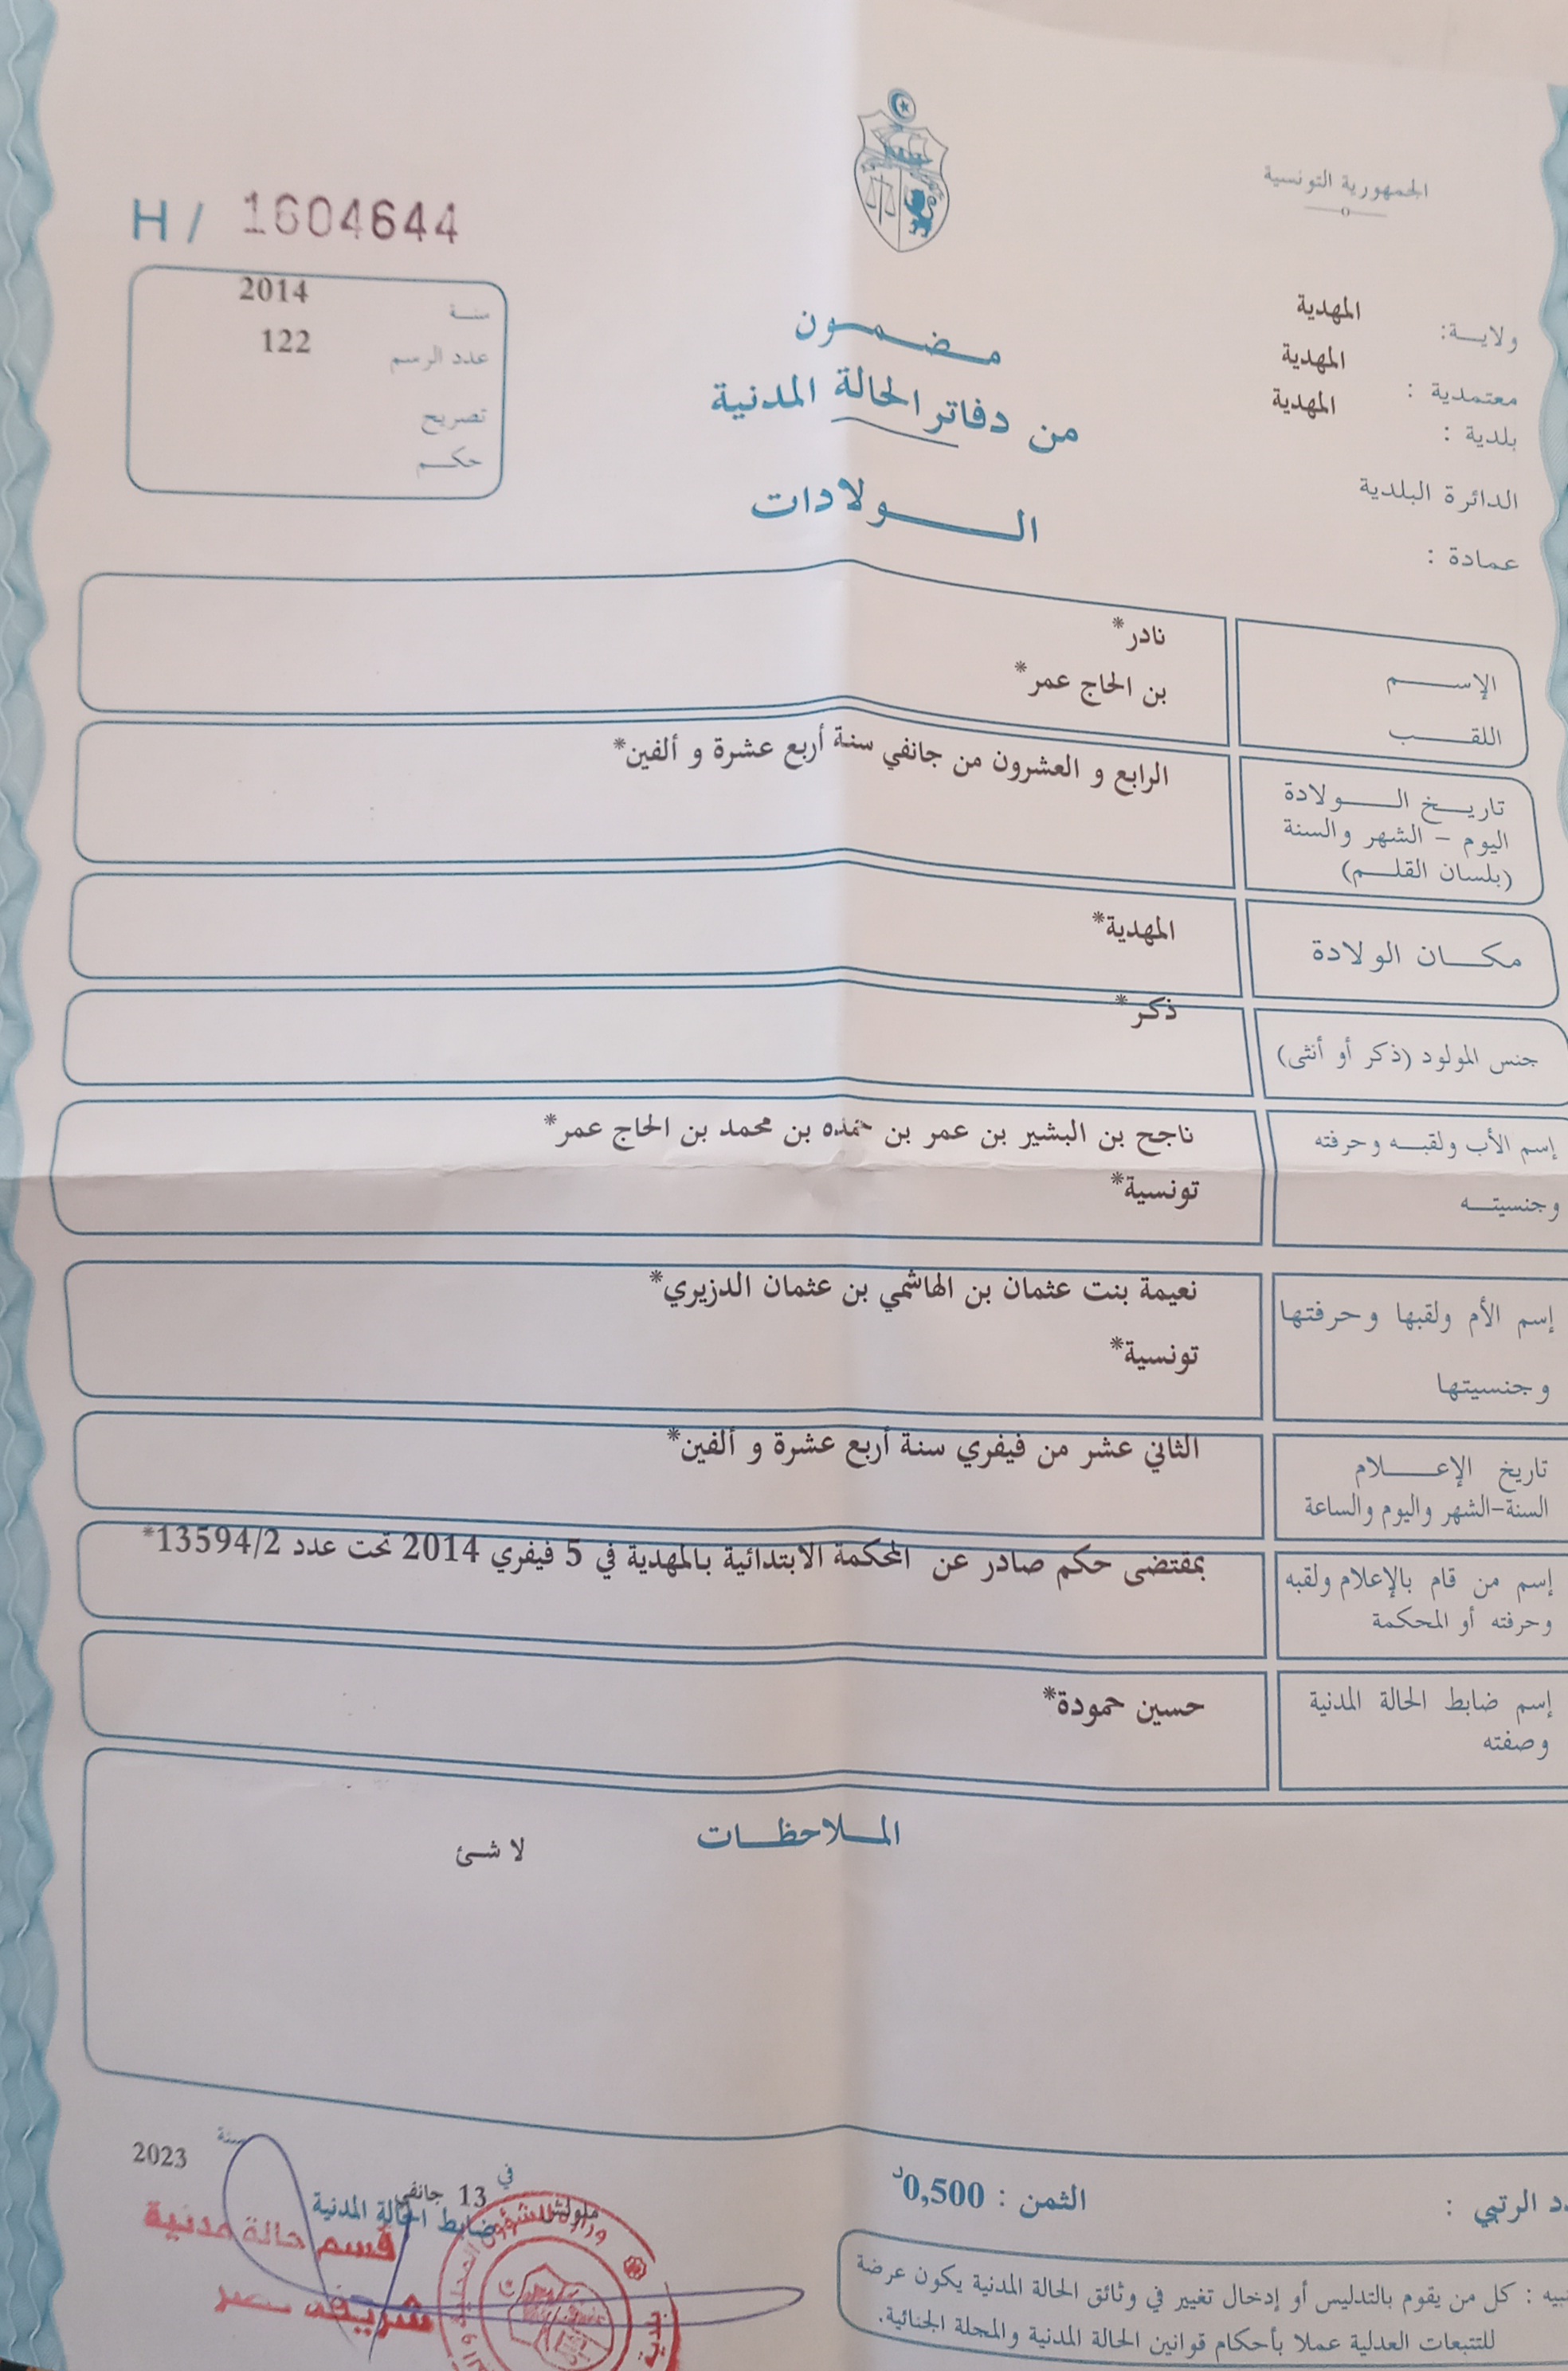 الجمهورية التونسية
H / 1604644
ولايــة: المهدية
معتمدية : المهدية
بلدية : المهدية
الدائرة البلدية
عمادة :
سنـة 2014
عدد الرسم 122
تصريح
حكـم
مـضـمـون
من دفاتر الحالة المدنية
الـولادات
الإسـم نادر*
اللقـب بن الحاج عمر*
تاريـخ الـولادة
اليوم - الشهر والسنة
(بلسان القلـم)
الرابع و العشرون من جانفي سنة أربع عشرة و ألفين*
مكـان الولادة المهدية*
جنس المولود (ذكر أو أنثى) ذكر*
إسم الأب ولقبـه وحرفته ناجح بن البشير بن عمر بن حمده بن محمد بن الحاج عمر*
وجنسيتـه تونسية*
إسم الأم ولقبها وحرفتها نعيمة بنت عثمان بن الهاشمي بن عثمان الدزيري*
وجنسيتها تونسية*
تاريخ الإعـلام
السنة-الشهر واليوم والساعة
الثاني عشر من فيفري سنة أربع عشرة و ألفين*
إسم من قام بالإعلام ولقبه
وحرفته أو المحكمة
بمقتضى حكم صادر عن المحكمة الابتدائية بالمهدية في 5 فيفري 2014 تحت عدد 13594/2*
إسم ضابط الحالة المدنية
وصفته
حسين حمودة*
المـلاحظـات
لا شئ
ملولش في 13 جانفي سنة 2023
ضابط الحالة المدنية
قسم حالة مدنية
الرتبي :
الثمن : 0,500د
كل من يقوم بالتدليس أو إدخال تغيير في وثائق الحالة المدنية يكون عرضة
للتتبعات العدلية عملا بأحكام قوانين الحالة المدنية والمجلة الجنائية.
وزارة الشؤون المحلية
بلدية